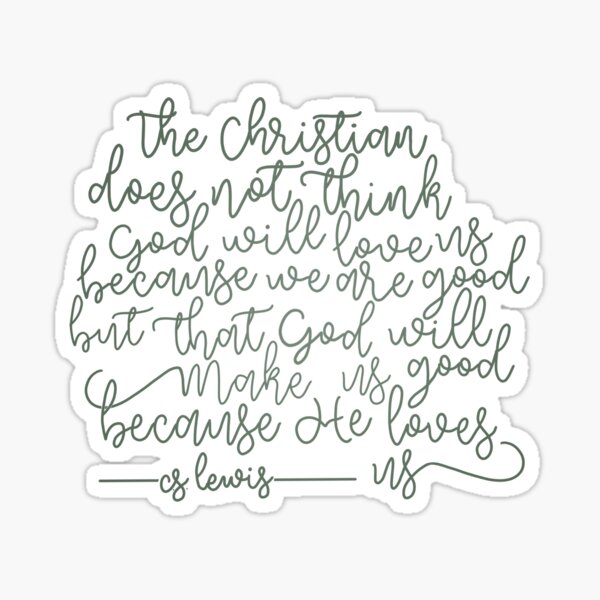 The Christian
does not think
God will love us
because we are good
but that God will
Make us good
because He loves
us
cs. lewis